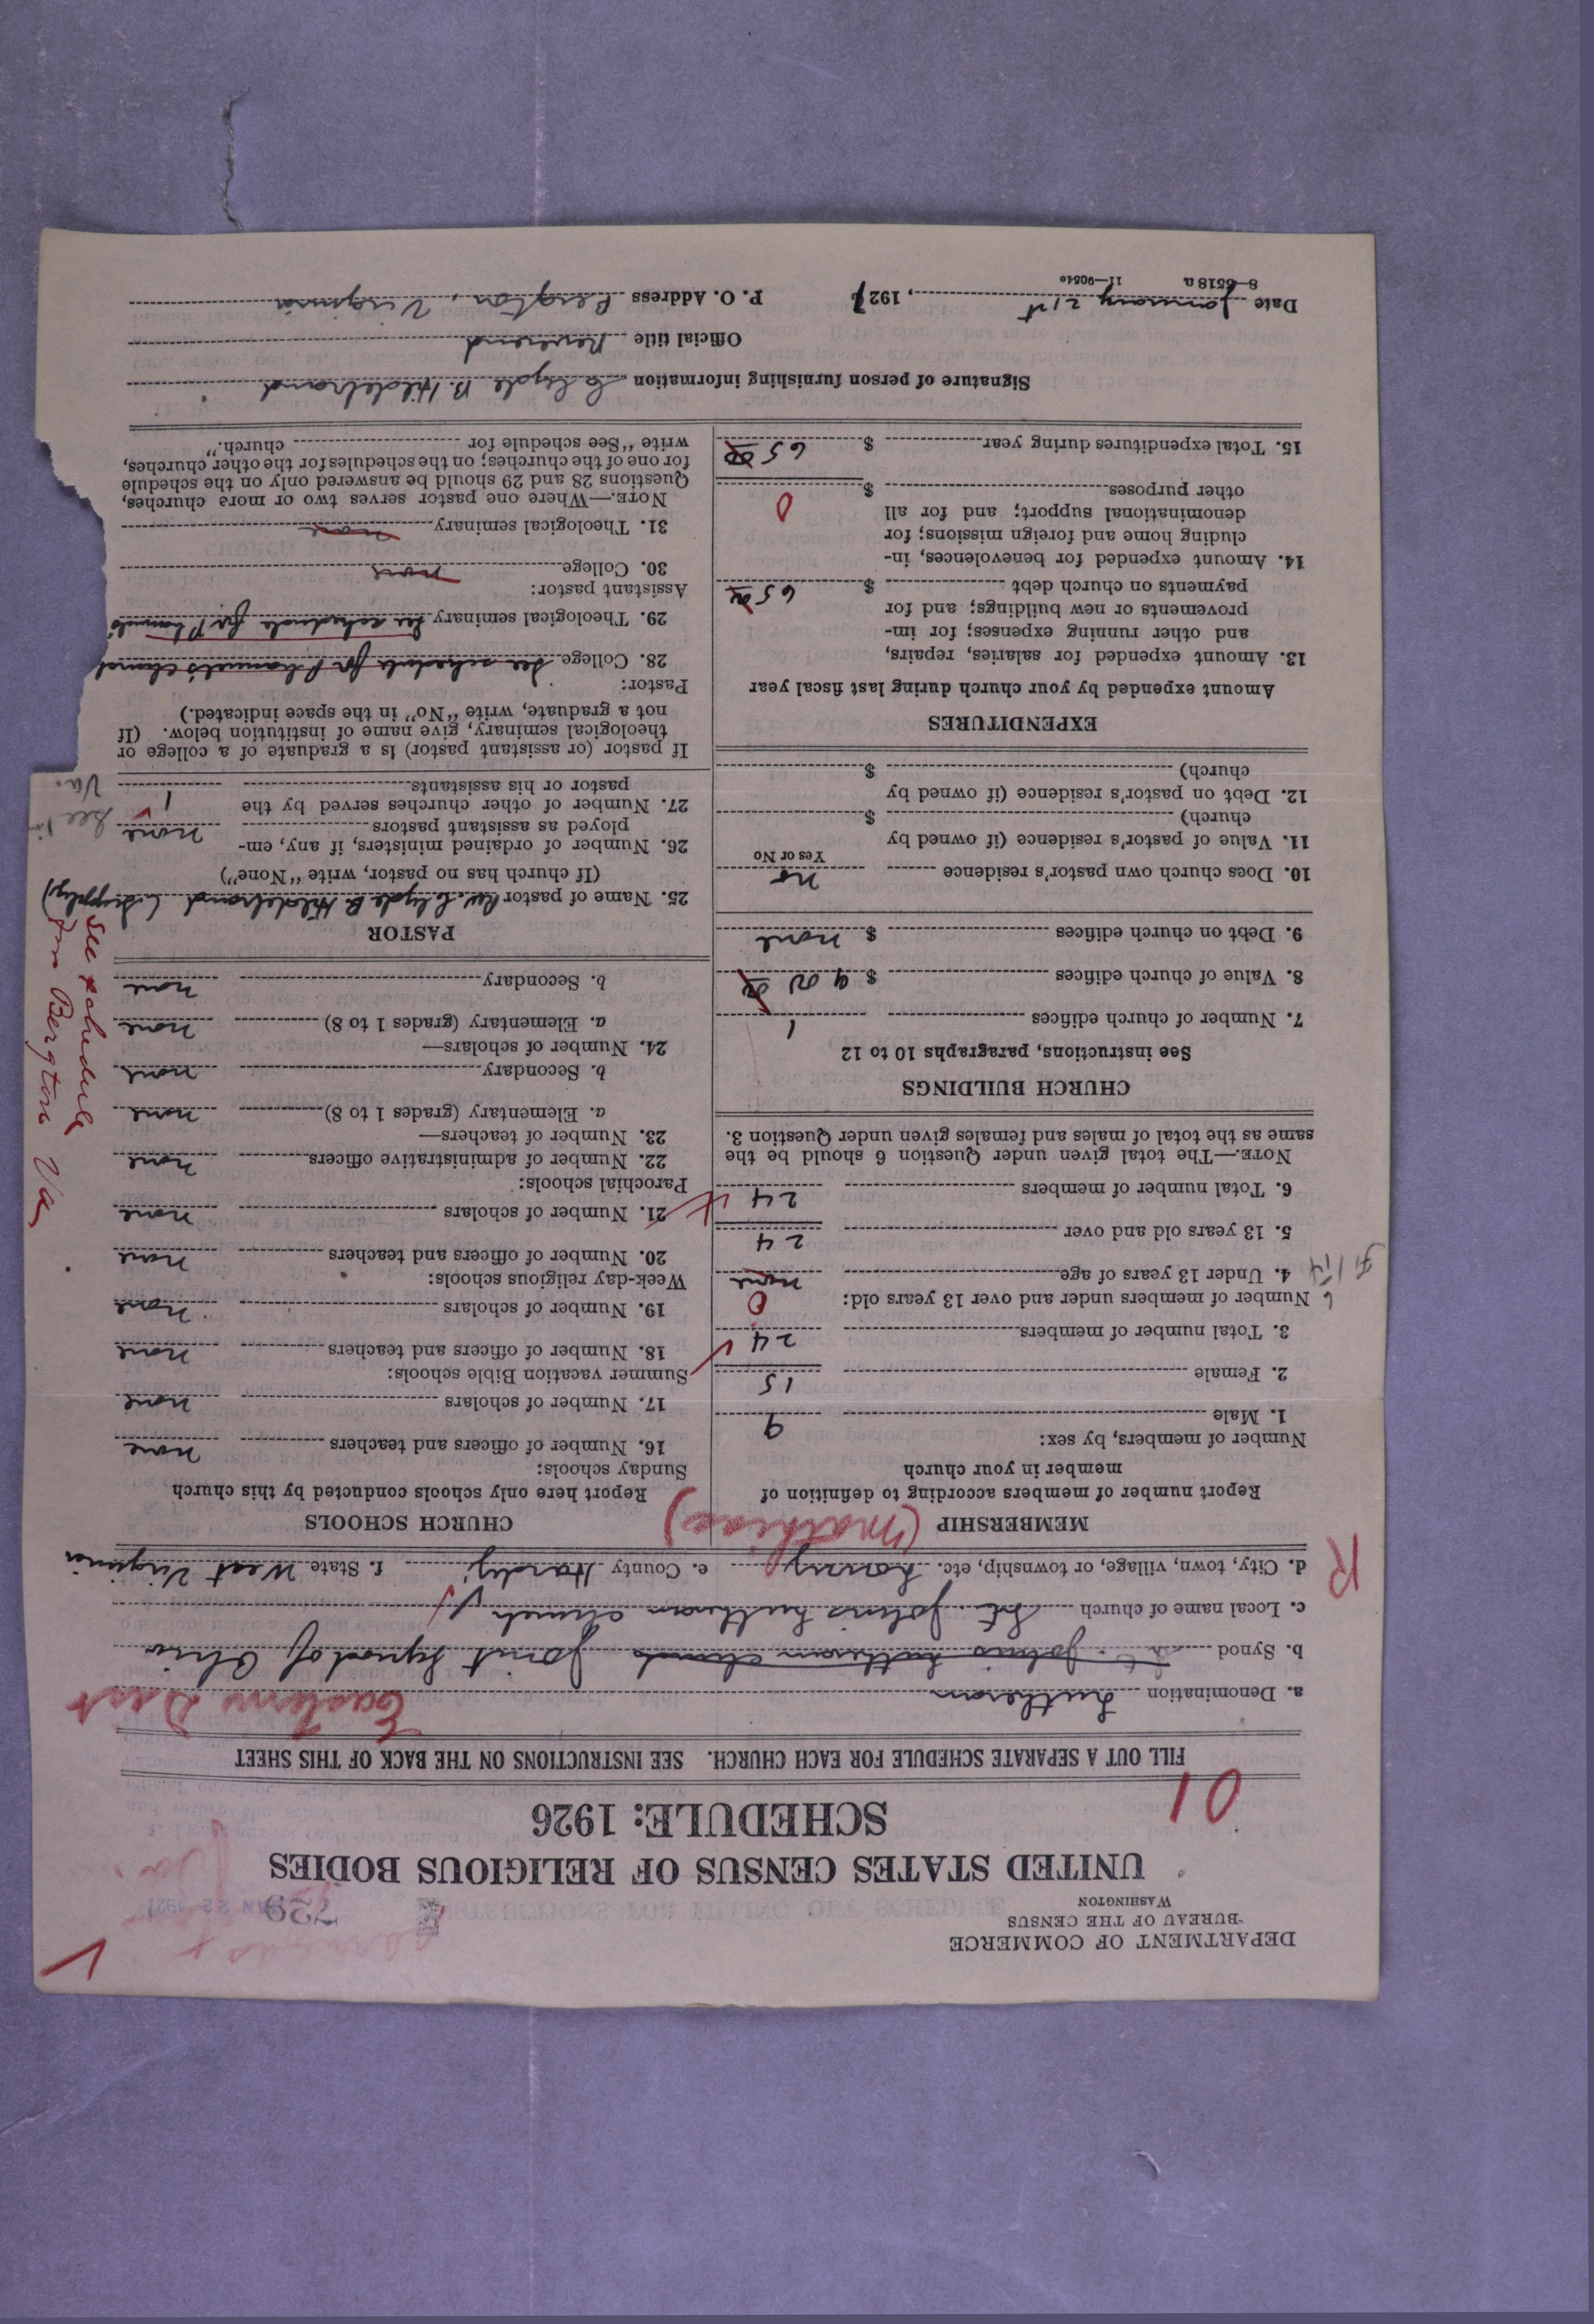 DEPARTMENT OF COMMERCE
BUREAU OF THE CENSUS
WASHINGTON
729
JAN 22 1927
UNITED STATES CENSUS OF RELIGIOUS BODIES
SCHEDULE: 1926
01
FILL OUT A SEPARATE SCHEDULE FOR EACH CHURCH. SEE INSTRUCTIONS ON THE BACK OF THIS SHEET
Eastern Dist
a. Denomination Lutheran
b. Synod St. Johns Lutheran Church Joint Synod of Ohio
c. Local name of church St. Johns Lutheran Church
R
d. City, town, village, or township, etc. e. County Hardy f. State West Virginia
(Mathias)
MEMBERSHIP
Report number of members according to definition of
member in your church
Number of members, by sex:
1. Male 9
2. Female 15
3. Total number of members 24
Number of members under and over 13 years old:
0
4. Under 13 years of age none
5. 13 years old and over 24
6. Total number of members 24
NOTE.—The total given under Question 6 should be the
same as the total of males and females given under Question 3.
CHURCH BUILDINGS
See instructions, paragraphs 10 to 12
7. Number of church edifices 1
8. Value of church edifices $ 900 00
9. Debt on church edifices $ none
10. Does church own pastor's residence no
Yes or No
11. Value of pastor's residence (if owned by
church) $
12. Debt on pastor's residence (if owned by
church) $
EXPENDITURES
Amount expended by your church during last fiscal year
13. Amount expended for salaries, repairs,
and other running expenses; for im-
provements or new buildings; and for
payments on church debt $ 65 00
14. Amount expended for benevolences, in-
cluding home and foreign missions; for
denominational support; and for all
other purposes $ 0
15. Total expenditures during year $ 65 00
CHURCH SCHOOLS
Report here only schools conducted by this church
Sunday schools:
16. Number of officers and teachers none
17. Number of scholars none
Summer vacation Bible schools:
18. Number of officers and teachers none
19. Number of scholars none
Week-day religious schools:
20. Number of officers and teachers none
21. Number of scholars none
Parochial schools:
22. Number of administrative officers none
23. Number of teachers—
a. Elementary (grades 1 to 8) none
b. Secondary none
24. Number of scholars—
a. Elementary (grades 1 to 8) none
b. Secondary none
See schedule
for Bergton Va
PASTOR
25. Name of pastor Rev. Clyde B. Hildebrand (Supply)
(If church has no pastor, write "None")
26. Number of ordained ministers, if any, em-
ployed as assistant pastors none
27. Number of other churches served by the
pastor or his assistants 1
See
Va.
If pastor (or assistant pastor) is a graduate of a college or
theological seminary, give name of institution below. (If
not a graduate, write "No" in the space indicated.)
Pastor:
28. College See schedule for Phanuel's Church
29. Theological seminary See schedule for Phanuel's
Assistant pastor:
30. College none
31. Theological seminary none
NOTE.—Where one pastor serves two or more churches,
Questions 28 and 29 should be answered only on the schedule
for one of the churches; on the schedules for the other churches,
write "See schedule for church."
Signature of person furnishing information Clyde B. Hildebrand
Official title Reverend
Date January 21st, 1927 P. O. Address Bergton, Virginia
8—6518 a 11—9054e